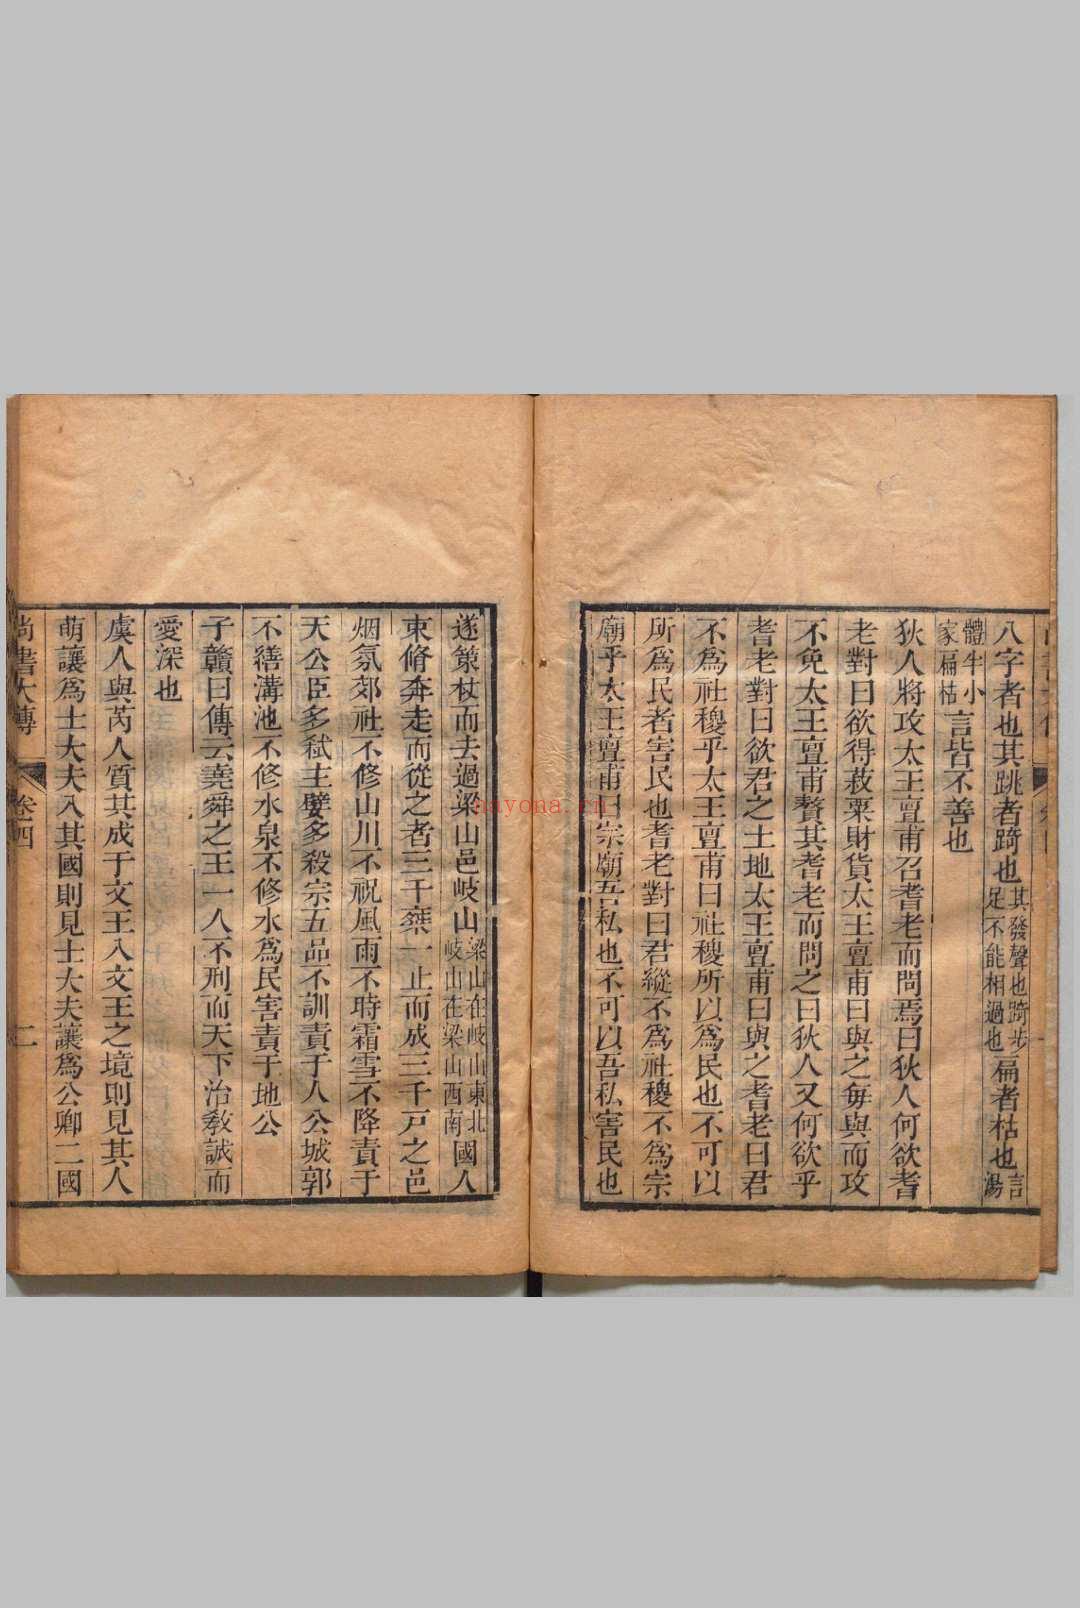 八字者也其跳者踦也其發聲也踦步足不能相過也扁者枯也言湯
體半小家扁枯言皆不善也
狄人將攻太王亶甫召耆老而問焉曰狄人何欲耆
老對曰欲得菽粟財貨太王亶甫曰與之每與而攻
不免太王亶甫贅其耆老而問之曰狄人又何欲乎
耆老對曰欲君之土地太王亶甫曰與之耆老曰君
不爲社稷乎太王亶甫曰社稷所以爲民也不可以
所爲民者害民也耆老對曰君縱不爲社稷不爲宗
廟乎太王亶甫曰宗廟吾私也不可以吾私害民也
遂策杖而去過梁山邑岐山梁山在岐山東北岐山在梁山西南國人
東脩奔走而從之者三千乘一止而成三千戶之邑
烟氛郊社不修山川不祝風雨不時霜雪不降責于
天公臣多弒主孽多殺宗五品不訓責于人公城郭
不繕溝池不修水泉不修水爲民害責于地公
子贛曰傳云堯舜之王一人不刑而天下治敎誠而
愛深也
虞人與芮人質其成于文王入文王之境則見其人
萌讓爲士大夫入其國則見士大夫讓爲公卿二國
尚書大傳 卷四 二
hayona.cn